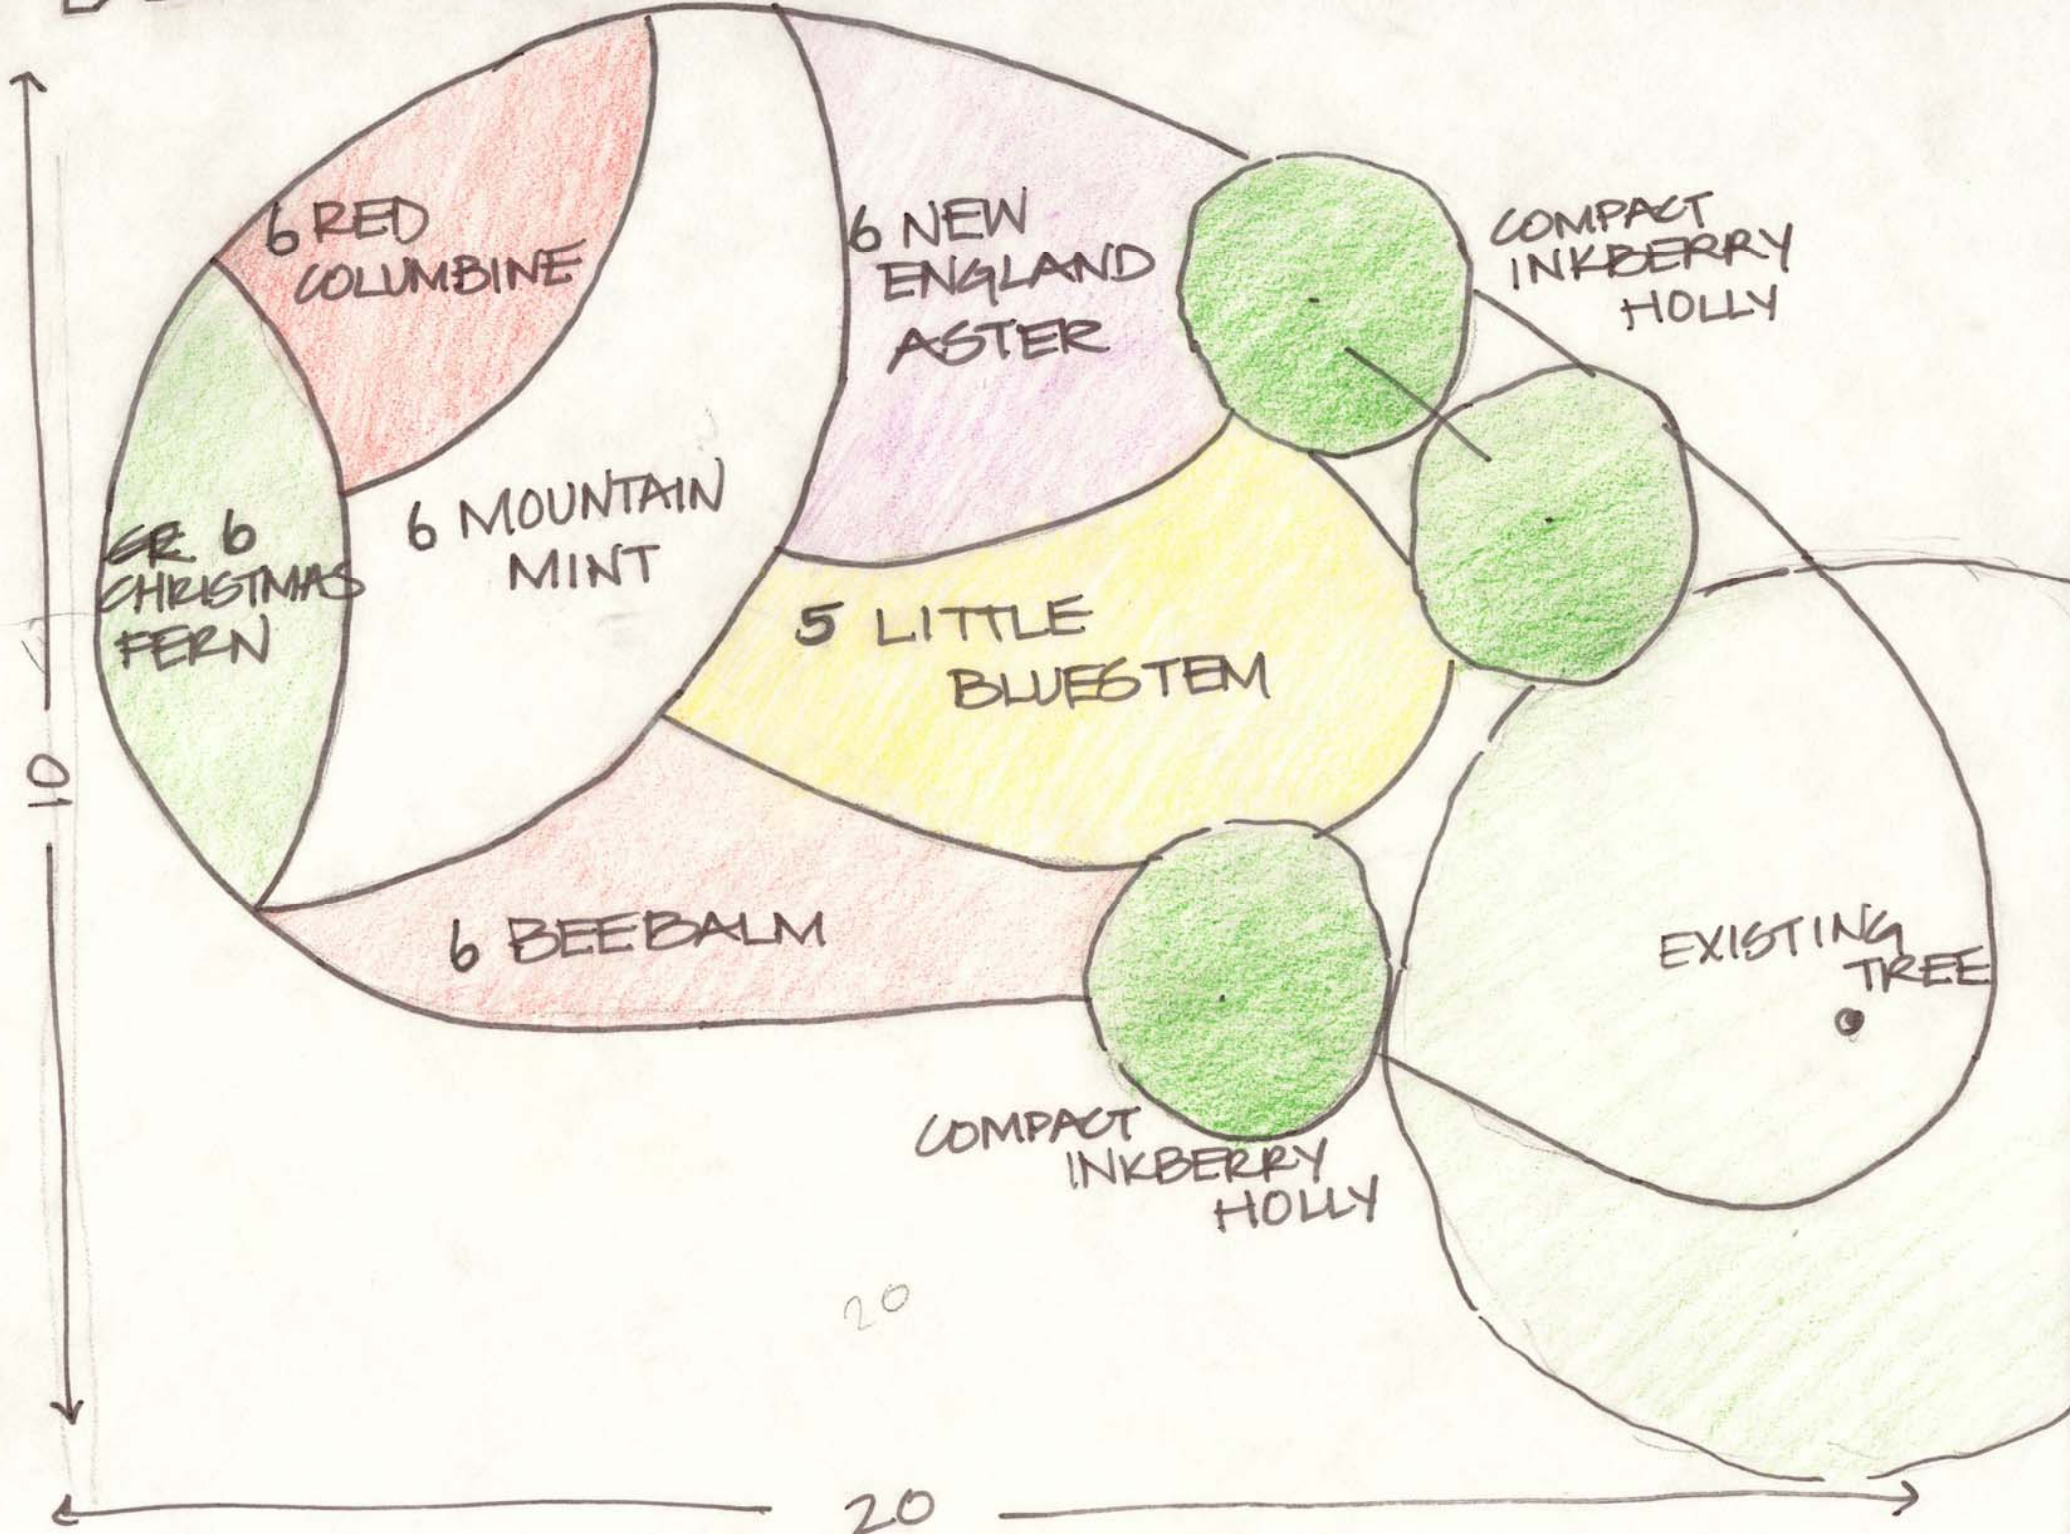 6 RED
COLUMBINE
6 NEW
ENGLAND
ASTER
COMPACT
INKBERRY
HOLLY
6
CHRISTMAS
FERN
6 MOUNTAIN
MINT
5 LITTLE
BLUESTEM
10
6 BEEBALM
EXISTING
TREE
COMPACT
INKBERRY
HOLLY
20
20